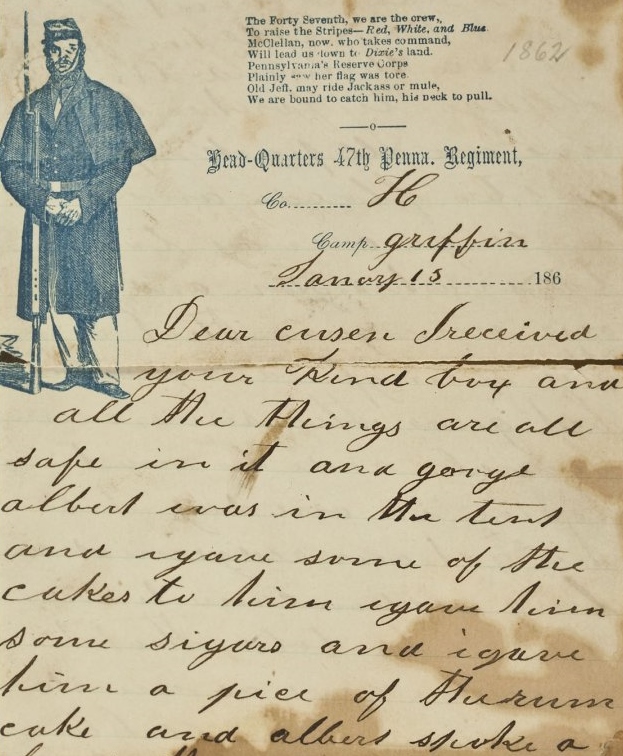 The Forty Seventh, we are the crew,
To raise the Stripes—Red, White, and Blue.
McClellan, now, who takes command,
Will lead us down to Dixie's land.
Pennsylvania's Reserve Corps
Plainly saw her flag was tore
Old Jeff. may ride Jackass or mule,
We are bound to catch him, his neck to pull.
1862
Head-Quarters 47th Penna. Regiment,
Co. H
Camp griffin
Janury 15 186
Dear cusen I received
your Kind box and
all the things are all
safe in it and gorge
albert was in the tent
and igave some of the
cakes to him igave him
some sigars and igave
him a pice of the rum
cake and albert spoke a